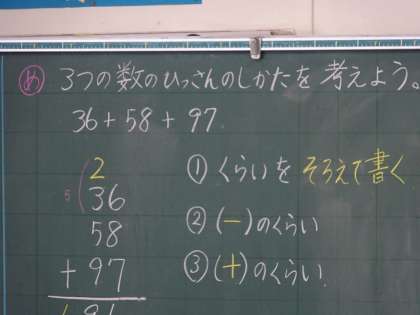 め 3つの数のひっさんのしかたを考えよう。
36+58+97
2
5 36
58
+97
191
①くらいをそろえて書く
②(一)のくらい
③(十)のくらい.